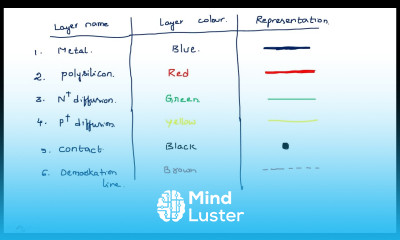 Layer name Layer colour. Representation.
1. Metal. Blue.
2. polysilicon. Red
3. N+ diffusion. Green
4. P+ diffusion. Yellow
5. contact Black
6. Demookation Brown
line.
Mind
Luster